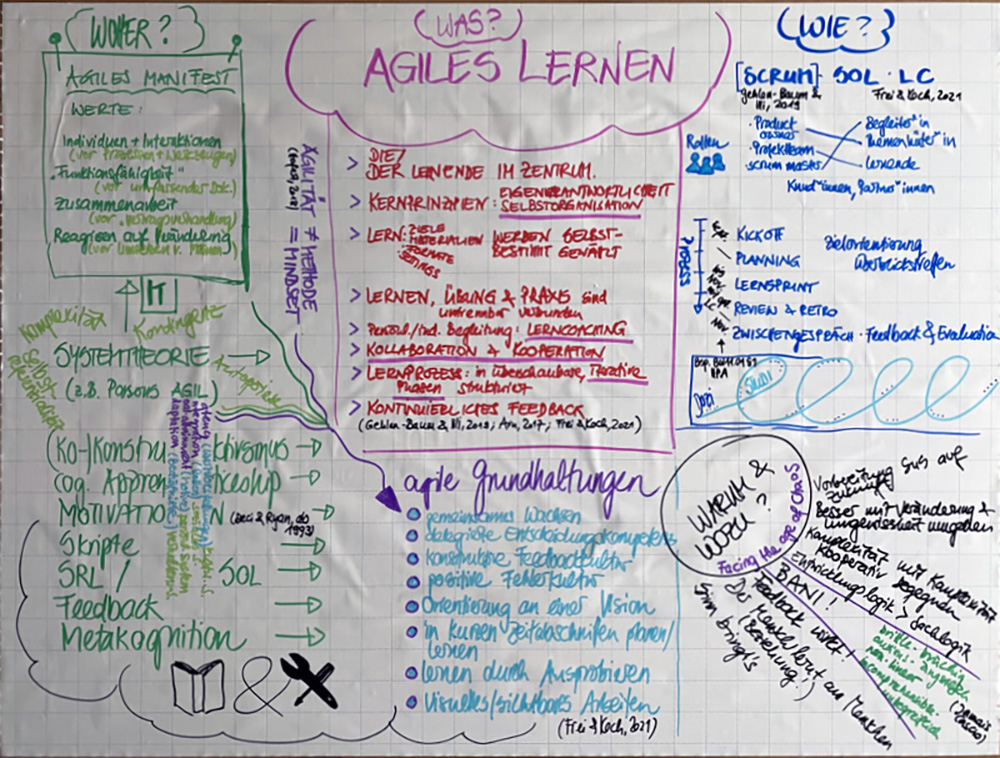 WOHER?
AGILES MANIFEST
WERTE:
Individuen + Interaktionen
(vor Prozessen + Werkzeugen)
"Funktionsfähigkeit"
(vor umfassender Dok.)
Zusammenarbeit
(vor Vertragsverhandlung)
Reagieren auf Veränderung
IT
Komplexität
Kontingenz
Autopoiese
SYSTEMTHEORIE
(z.B. Parsons AGIL)
(KO-)Konstruktivismus
Cog. Apprenticeship
MOTIVATION (Deci & Ryan,
1993)
Skripte
SRL / SOL
Feedback
Metakognition
&
WAS?
AGILES LERNEN
AGILITÄT ≠ METHODE
= MINDSET
> DIE/
DER LERNENDE IM ZENTRUM.
> KERNPRINZIPIEN: EIGENVERANTWORTLICHKEIT
SELBSTORGANISATION
> LERN: ZIELE
MATERIALIEN WERDEN SELBST-
FORMATE BESTIMMT GEWÄHLT
SETTINGS
> LERNEN, ÜBUNG & PRAXIS sind
untrennbar verbunden
> Persönl./ind. Begleitung: LERNCOACHING
> KOLLABORATION & KOOPERATION
> LERNPROZESS: in überschaubare, iterative
Phasen strukturiert
> KONTINUIERLICHES FEEDBACK
(Gehlen-Baum & Illi, 2019; Arn, 2017; Frei & Koch, 2021)
agile Grundhaltungen
gemeinsames Wachsen
delegierte Entscheidungskompetenz
konstruktive Feedbackkultur
positive Fehlerkultur
Orientierung an einer Vision
in kurzen Zeitabschnitten planen/
lernen
lernen durch Ausprobieren
visuelles/sichtbares Arbeiten
(Frei & Koch, 2021)
WIE?
[SCRUM] SOL · LC
Gehlen-Baum & Illi, 2019
Frei & Koch, 2021
Rollen
Product owner
Projektteam
scrum master
Begleiter*in
Themenhüter*in
Lernende
Kund*innen, Partner*innen
PROZESS
KICKOFF
PLANNING
LERNSPRINT
REVIEW & RETRO
ZWISCHENGESPRÄCH · Feedback & Evaluation
Zielorientierung
Überblickstreffen
WARUM &
WOZU?
Facing the age of Chaos
Vorbereitung aufs
Zukunft
Besser mit Veränderung &
Ungewissheit umgehen
Komplexität mit Komplexität
kooperativ begegnen
Entwicklungslogik > Sachlogik
BANI!
Feedback wirkt!
Der Mensch lernt am Menschen
(Beziehung!)
Sinn bringt's